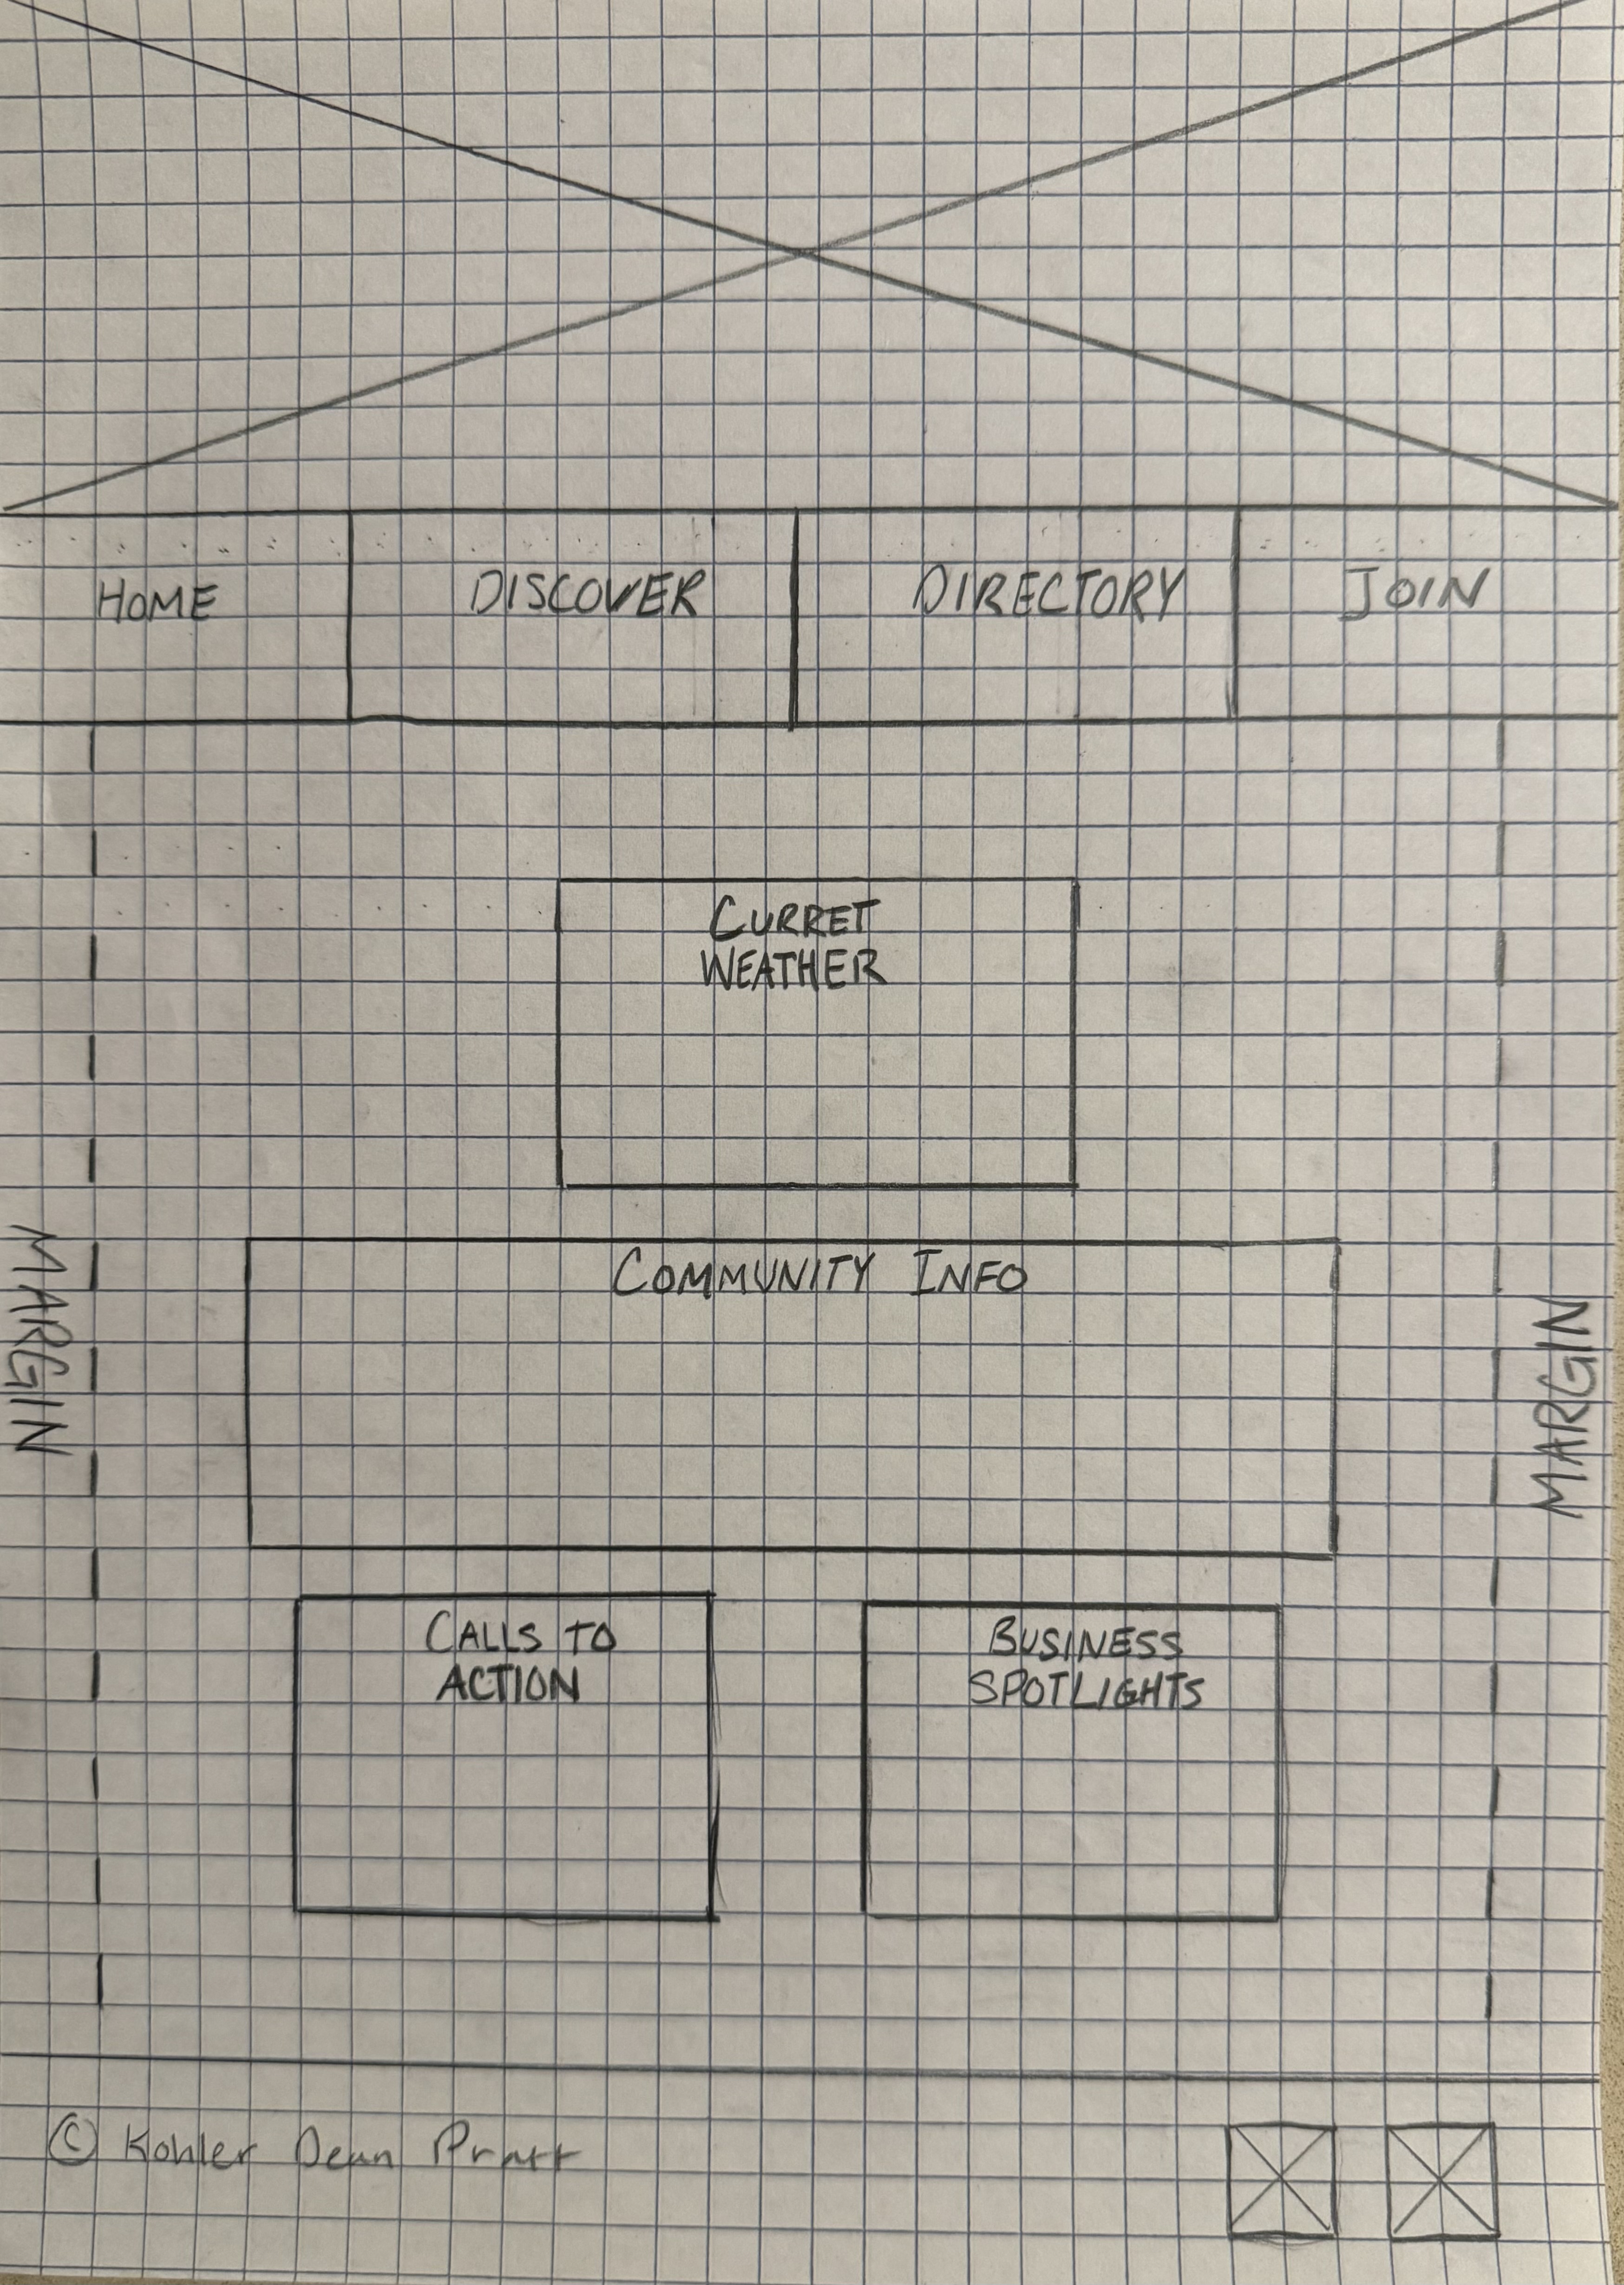 HOME
DISCOVER
DIRECTORY
JOIN
CURRET
WEATHER
COMMUNITY INFO
MARGIN
MARGIN
CALLS TO
ACTION
BUSINESS
SPOTLIGHTS
© Kohler Dean Pratt